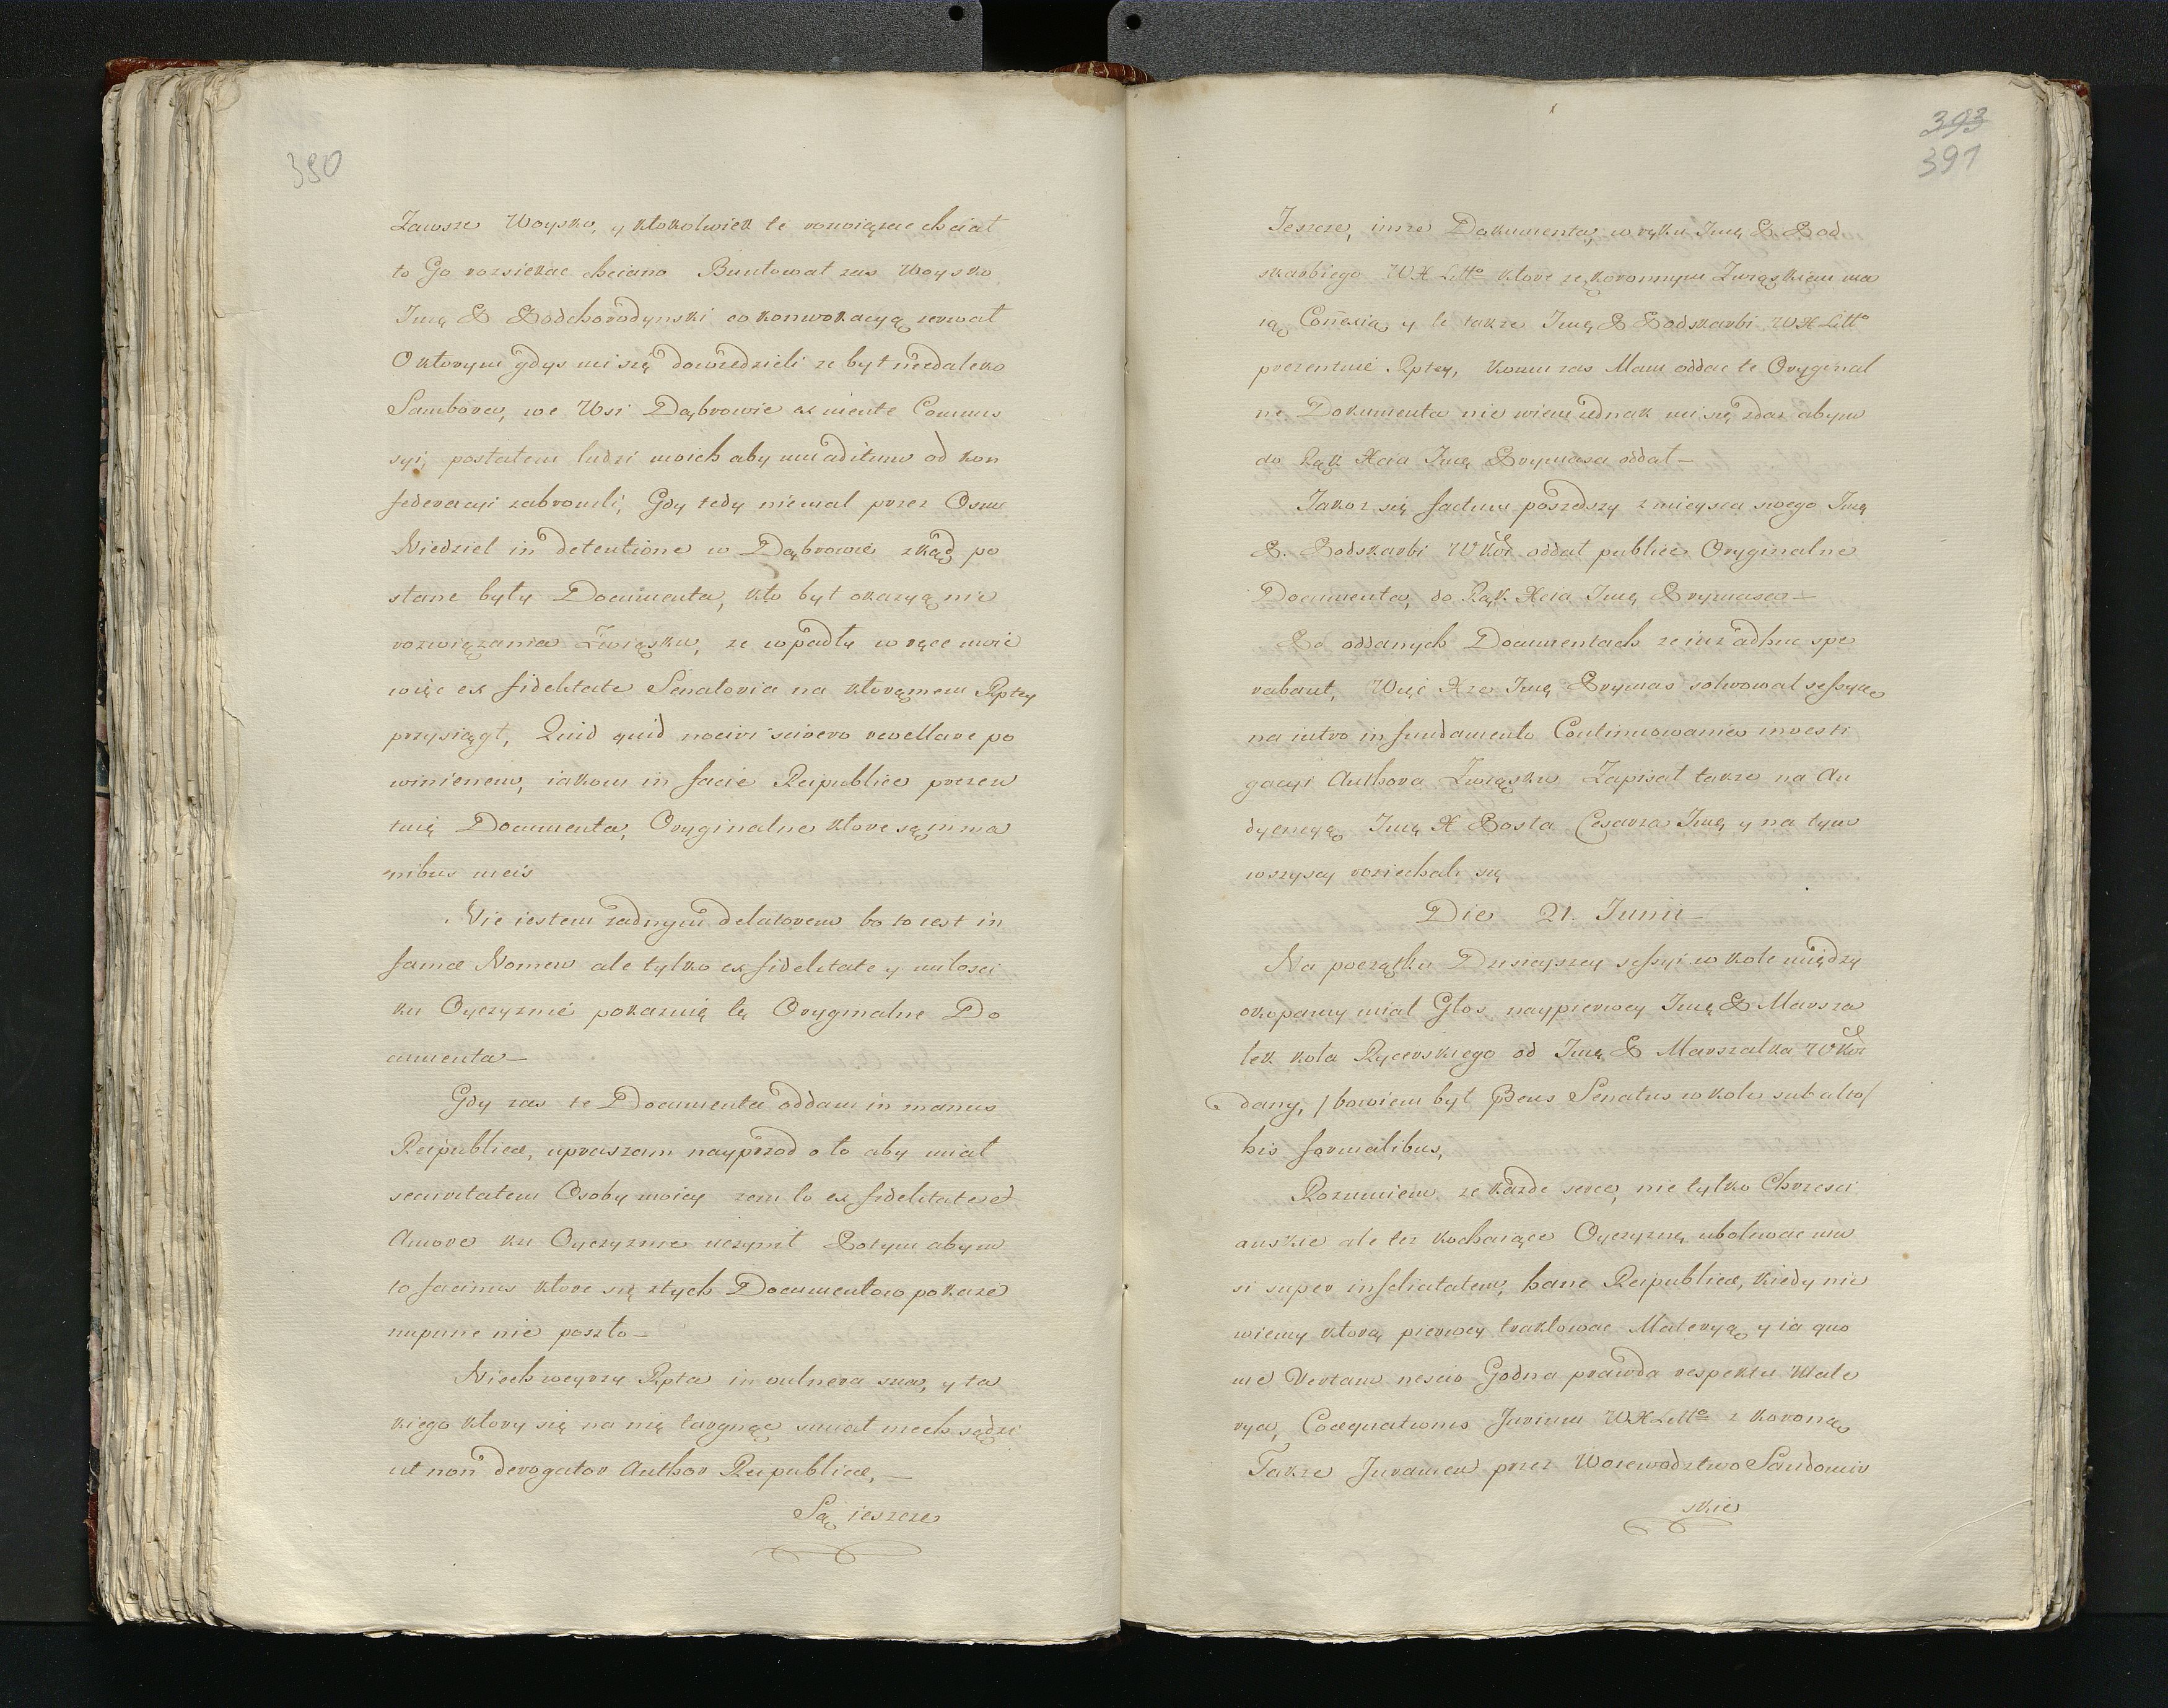 390
Zawsze Woysko, y ktokolwiek te rozwiązac chciał
to Go rozsiekac chciano Buntował zas Woysko
Imę P Podchorodynski co konwokacyą zerwał
O ktorym gdys mi się dowiedzieli ze był niedaleko
Sambora, we Wsi Dąbrowie ex mente Commis
syi, posłałem ludzi moich aby mu aditum od kon
federacyi zabronili, Gdy tedy niemal przez Osm
Niedziel in detentione w Dąbrowie zkąd po
słane były Documenta, kto był okazyą nie
rozwiązania Związku, ze wpadły w ręce moie
więc ex fidelitate Senatoria na ktorąmem Rptey
przysiągł, Quid quid nocivi scivero revellare po
winienem, iakom in facie Reipublice prezen
tuię Documenta, Oryginalne ktore są in ma
nibus meis
Nie iestem zadnym delatorem bo to iest in
famæ Nomen ale tylko ex fidelitate y miłosci
ku Oyczyznie pokazuię tę Oryginalne Do
cumenta—
Gdy zas te Documenta oddam in manus
Reipublicæ, upraszam nayprzod o to aby miał
securitatem Osoby moiey zem to ex fidelitate et
Amore ku Oyczyznie uczynił Potym abym
to facinus ktore się z tych Documentow pokaze
nupune nie poszło—
Niech weyrzy Rpta in vulnera sua, y ta
kiego ktory się na nię targnąc smiał niech sądzi
ut non derogator Author Reipublicæ,—
Są ieszcze
393
391
Ieszcze, insze Dokumenta, w ręku Imę P Pod
skarbiego WX Litto ktore ze koronnym Związkiem ma
ią Connexią y te takze Imę P Podskarbi WX Litto
prezentuie Rptey, komu zas Mam oddac te Oryginal
ne Dokumenta nie wiem iednak mi się zdaz abym
do Rąk Xcia Imę Prymasa oddał—
Iakoz się factum poszedszy z mieysca swego Imę
P. Podskarbi WKor oddał publice Oryginalne
Documenta, do Rąk Xcia Imę Prymasa—
Po oddanych Documentach ze iuz adhuc spe
rabant, Więc Xze Imę Prymas solwował sessyą
na iutro in fundamento Continuowania investi
gacyi Authora Związku Zapisał takze na Au
dyencyą Imę X Posła Cesarza Imę y na tym
wszyscy roziechali się
Die 21. Junii—
Na początku Dzisieyszey sessyi w kole między
okopamy miał Głos naypierwey Imę P Marsza
łek koła Rycerskiego od Imę P Marszałka WKor
dany, /bowiem był Præs Senatus w kole sub alto/
his formalibus,
Rozumiem ze kazde serce, nie tylko Chrzesci
anskie ale tez kochaiące Oyczyznę ubolewac mu
si super infelicitatem, hanc Reipublicæ, kiedy nie
wiemy ktorą pierwey traktowac Materyą y ia quo
me Vertam nescio Godna prawda respektu Mate
rya, Coæquationis Jurium WXLitto z koroną
Takze Juramen przez Woiewodztwo Sandomir
skie